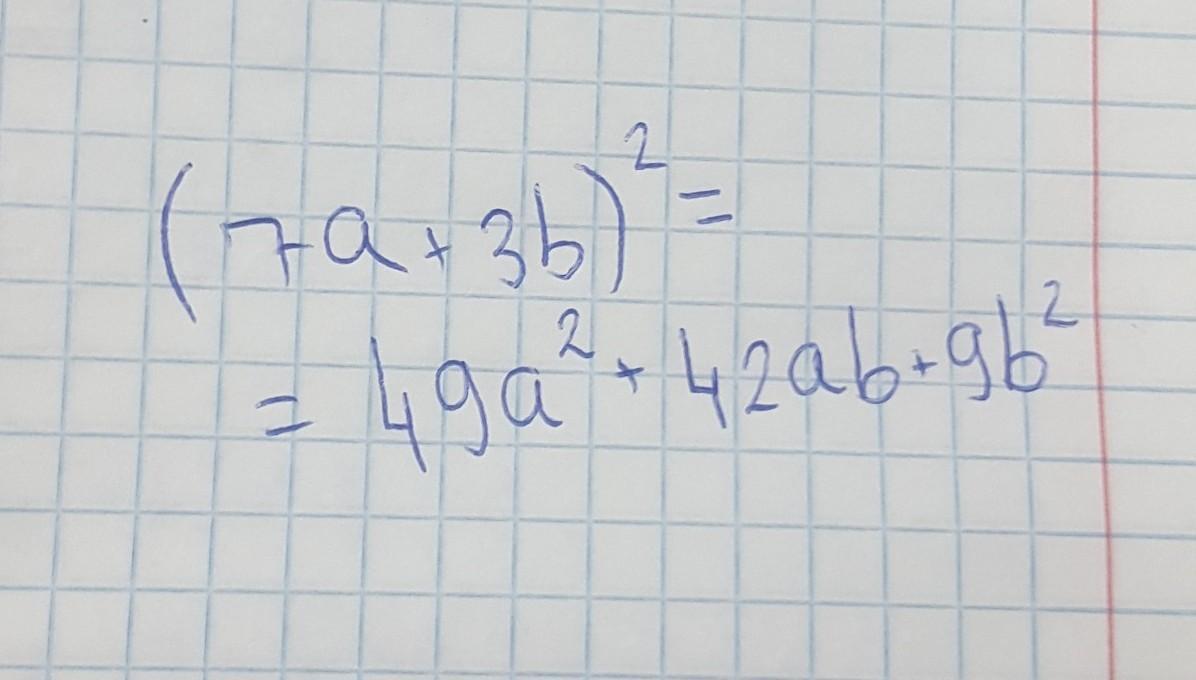 (7a+3b)²=
=49a²+42ab+9b²